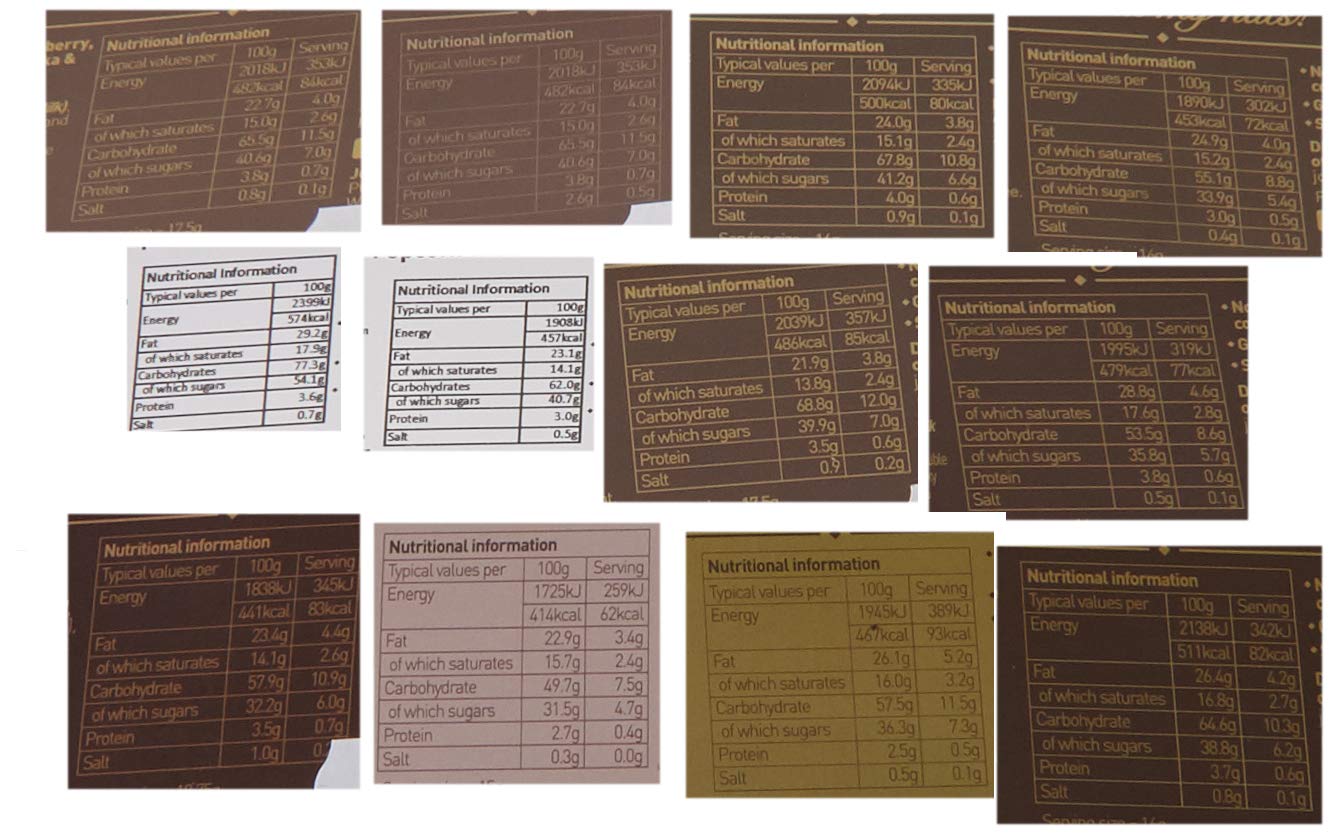 berry,
ka &
and
Nutritional information
Typical values per 100g Serving
Energy 2018kJ 353kJ
482kcal 84kcal
Fat 22.7g 4.0g
of which saturates 15.0g 2.6g
Carbohydrate 65.5g 11.5g
of which sugars 40.6g 7.0g
Protein 3.8g 0.7g
Salt 0.8g 0.1g
17.5g
Nutritional information
Typical values per 100g Serving
Energy 2018kJ 353kJ
482kcal 84kcal
Fat 22.7g 4.0g
of which saturates 15.0g 2.6g
Carbohydrate 65.5g 11.5g
of which sugars 40.6g 7.0g
Protein 3.8g 0.7g
Salt 2.6g 0.5g
Nutritional information
Typical values per 100g Serving
Energy 2094kJ 335kJ
500kcal 80kcal
Fat 24.0g 3.8g
of which saturates 15.1g 2.4g
Carbohydrate 67.8g 10.8g
of which sugars 41.2g 6.6g
Protein 4.0g 0.6g
Salt 0.9g 0.1g
Serving size = 16g
nuts!
Nutritional information
Typical values per 100g Serving
Energy 1890kJ 302kJ
453kcal 72kcal
Fat 24.9g 4.0g
of which saturates 15.2g 2.4g
Carbohydrate 55.1g 8.8g
of which sugars 33.9g 5.4g
Protein 3.0g 0.5g
Salt 0.4g 0.1g
Serving size = 16g
Nutritional Information
Typical values per 100g
Energy 2399kJ
574kcal
Fat 29.2g
of which saturates 17.9g
Carbohydrates 77.3g
of which sugars 54.1g
Protein 3.6g
Salt 0.7g
Nutritional Information
Typical values per 100g
Energy 1908kJ
457kcal
Fat 23.1g
of which saturates 14.1g
Carbohydrates 62.0g
of which sugars 40.7g
Protein 3.0g
Salt 0.5g
Nutritional information
Typical values per 100g Serving
Energy 2039kJ 357kJ
486kcal 85kcal
Fat 21.9g 3.8g
of which saturates 13.8g 2.4g
Carbohydrate 68.8g 12.0g
of which sugars 39.9g 7.0g
Protein 3.5g 0.6g
Salt 0.9 0.2g
17.5g
Nutritional information
Typical values per 100g Serving
Energy 1995kJ 319kJ
479kcal 77kcal
Fat 28.8g 4.6g
of which saturates 17.6g 2.8g
Carbohydrate 53.5g 8.6g
of which sugars 35.8g 5.7g
Protein 3.8g 0.6g
Salt 0.5g 0.1g
Nutritional information
Typical values per 100g Serving
Energy 1838kJ 345kJ
441kcal 83kcal
Fat 23.4g 4.4g
of which saturates 14.1g 2.6g
Carbohydrate 57.9g 10.9g
of which sugars 32.2g 6.0g
Protein 3.5g 0.7g
Salt 1.0g
Nutritional information
Typical values per 100g Serving
Energy 1725kJ 259kJ
414kcal 62kcal
Fat 22.9g 3.4g
of which saturates 15.7g 2.4g
Carbohydrate 49.7g 7.5g
of which sugars 31.5g 4.7g
Protein 2.7g 0.4g
Salt 0.3g 0.0g
Nutritional information
Typical values per 100g Serving
Energy 1945kJ 389kJ
467kcal 93kcal
Fat 26.1g 5.2g
of which saturates 16.0g 3.2g
Carbohydrate 57.5g 11.5g
of which sugars 36.3g 7.3g
Protein 2.5g 0.5g
Salt 0.5g 0.1g
Nutritional information
Typical values per 100g Serving
Energy 2138kJ 342kJ
511kcal 82kcal
Fat 26.4g 4.2g
of which saturates 16.8g 2.7g
Carbohydrate 64.6g 10.3g
of which sugars 38.8g 6.2g
Protein 3.7g 0.6g
Salt 0.8g 0.1g
Serving size = 16g